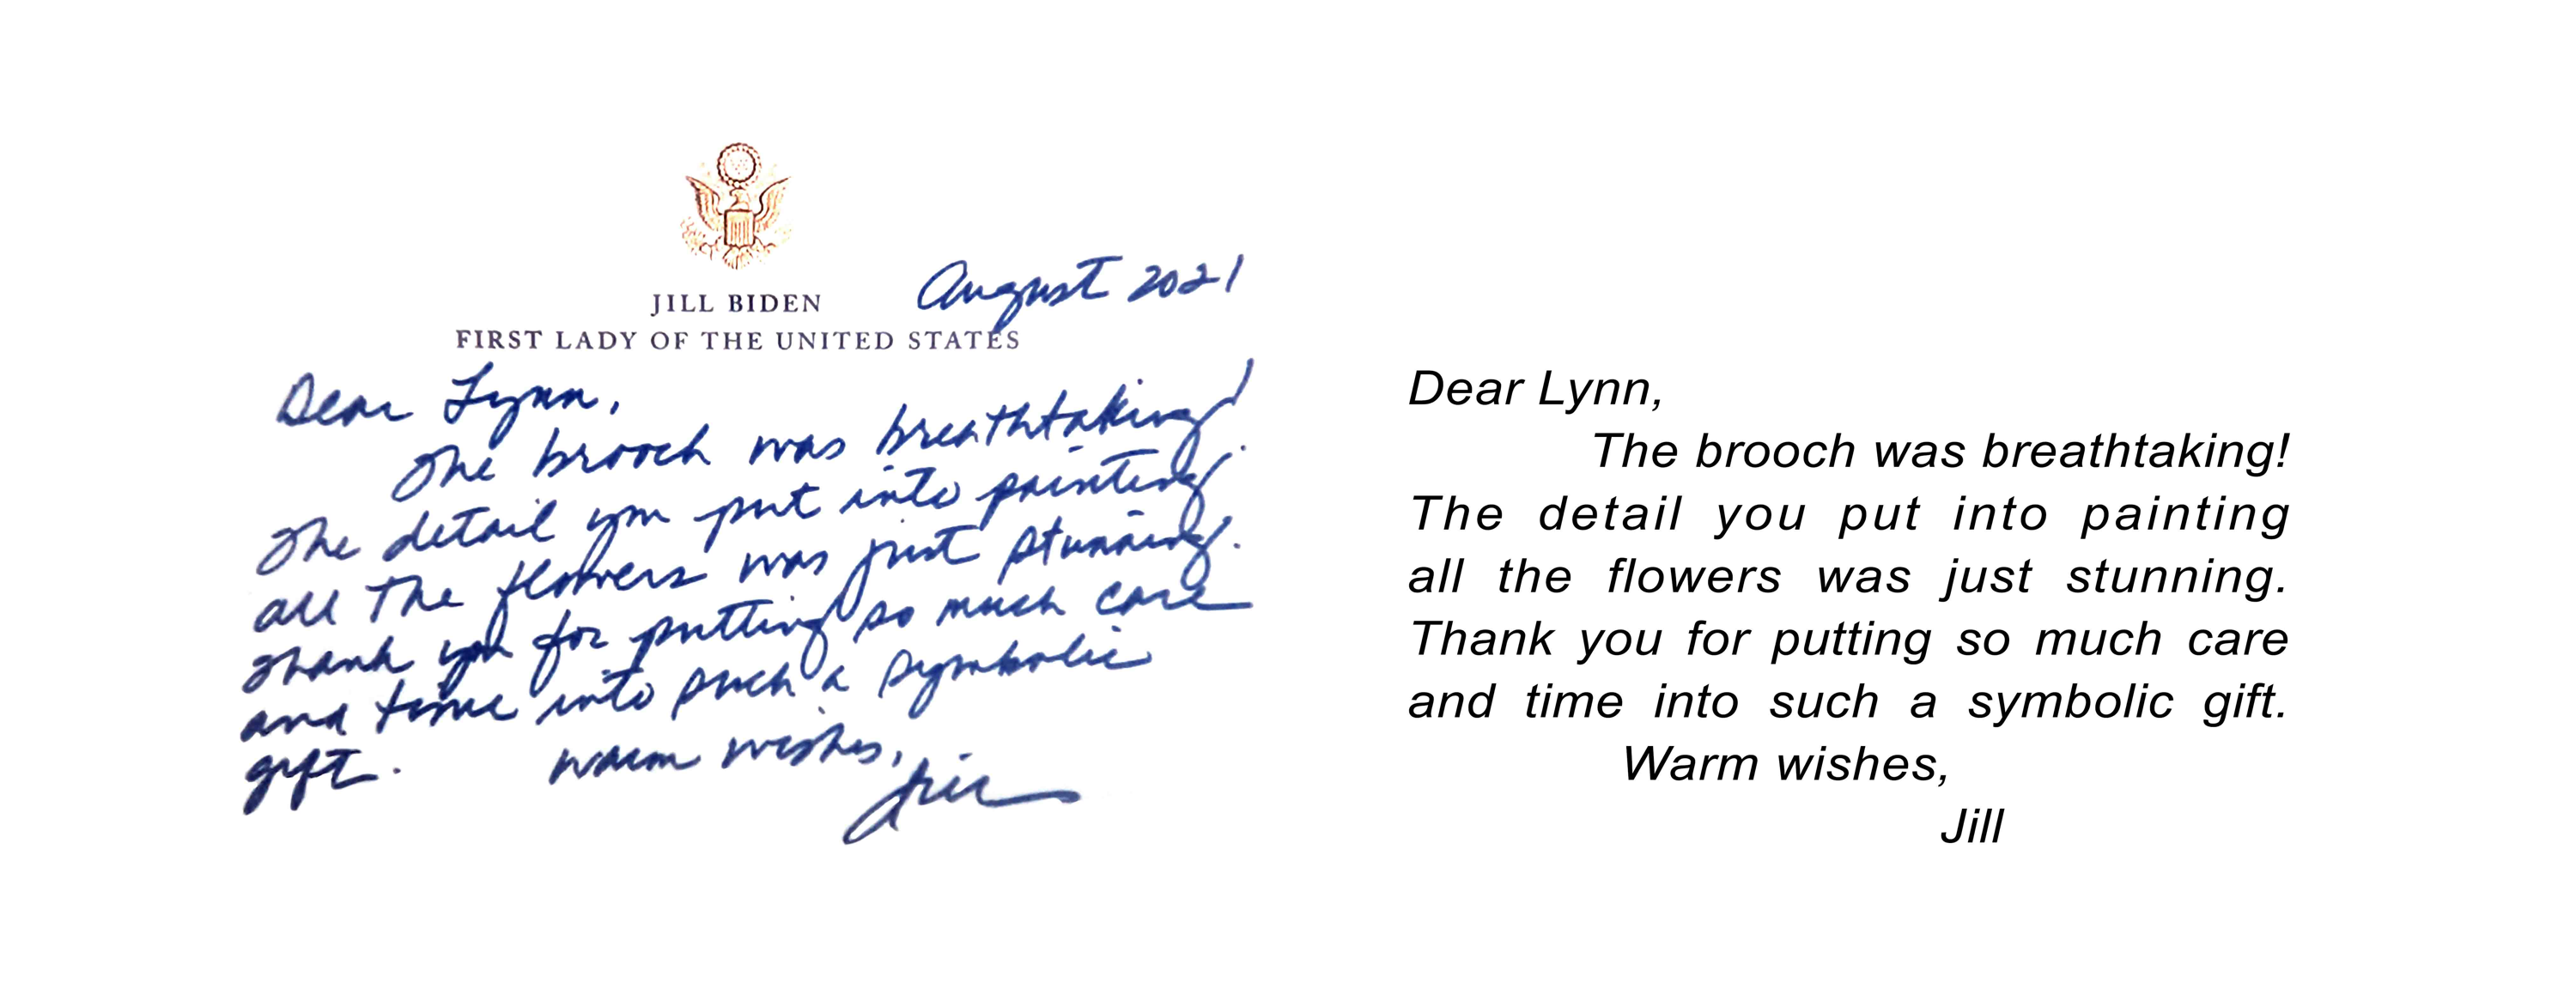 August 2021
JILL BIDEN
FIRST LADY OF THE UNITED STATES
Dear Lynn,
The brooch was breathtaking!
The detail you put into painting
all the flowers was just stunning.
Thank you for putting so much care
and time into such a symbolic
gift. Warm wishes,
Jill
Dear Lynn,
The brooch was breathtaking!
The detail you put into painting
all the flowers was just stunning.
Thank you for putting so much care
and time into such a symbolic gift.
Warm wishes,
Jill